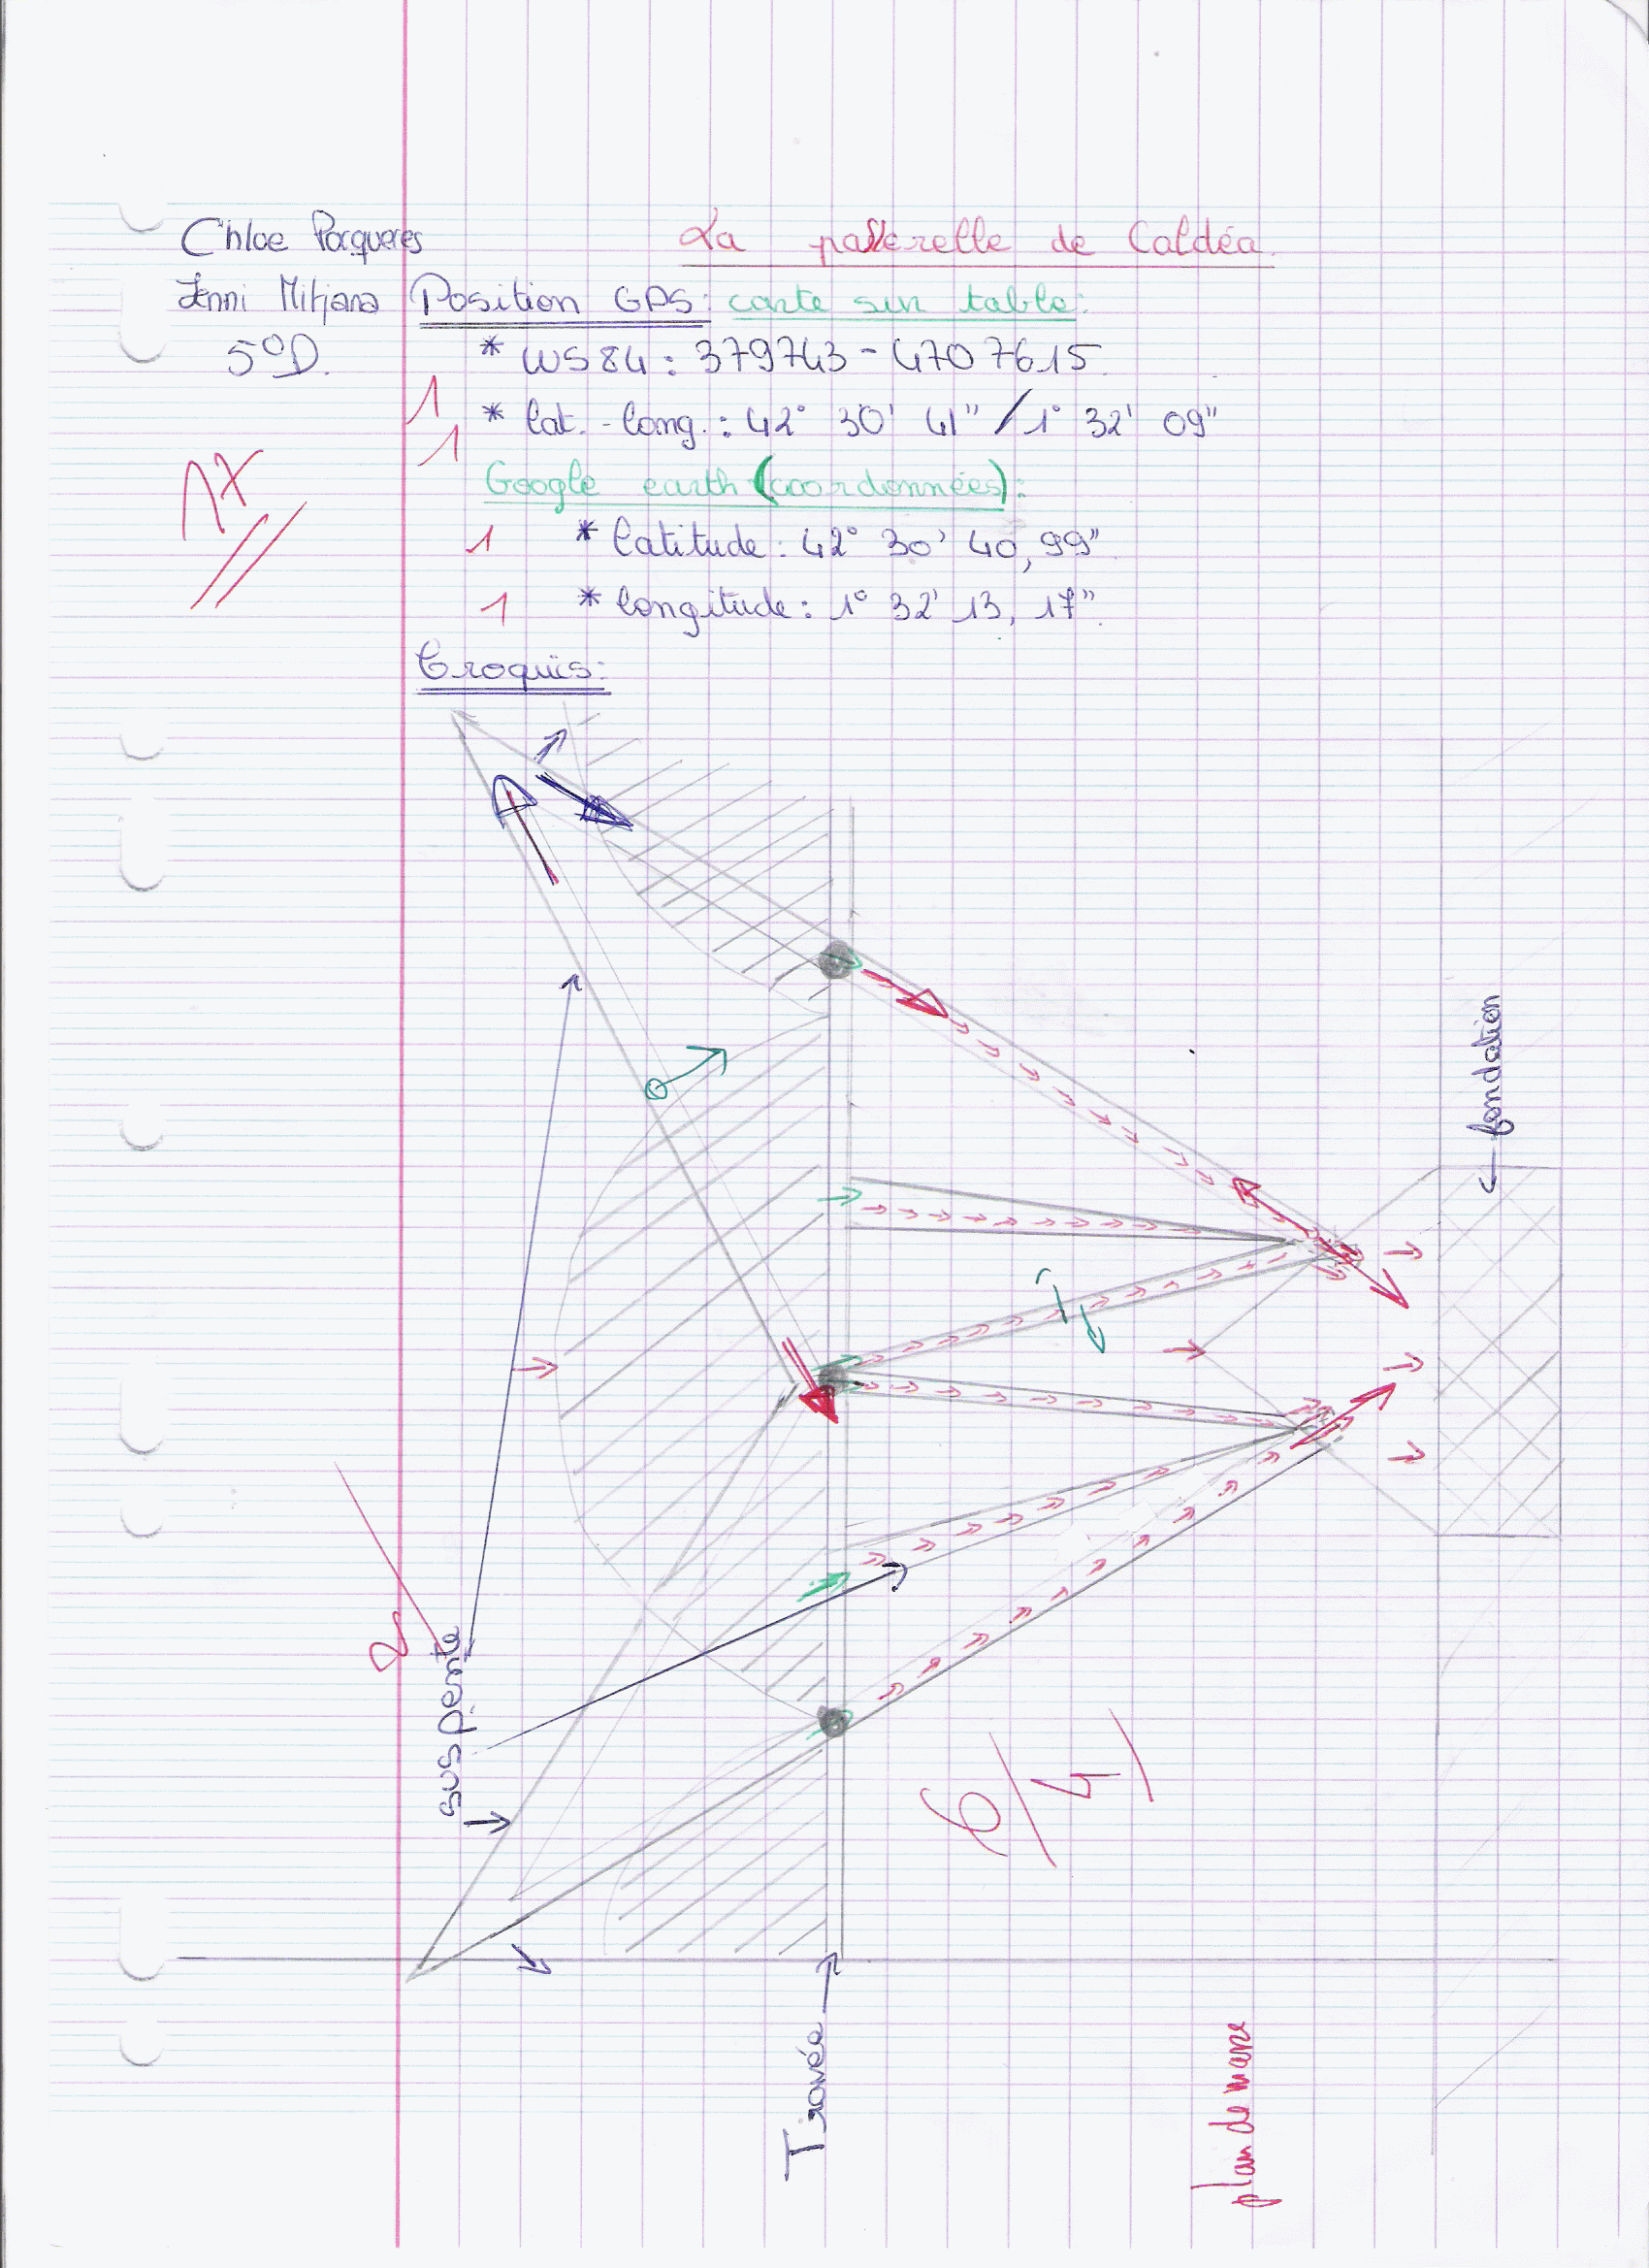 Chloe Pacqueres
La passerelle de Caldéa.
Jenni Mitjana
Position GPS: carte sur table:
5°D.
* WS84: 379743 - 4707615.
1
* lat. - long.: 42° 30' 41" / 1° 32' 09"
1
17
Google earth (coordonnées):
1 * latitude: 42° 30' 40,99"
1 * longitude: 1° 32' 13, 17"
Croquis:
← fondation
suspente
2
6/4
Travée
plan de masse